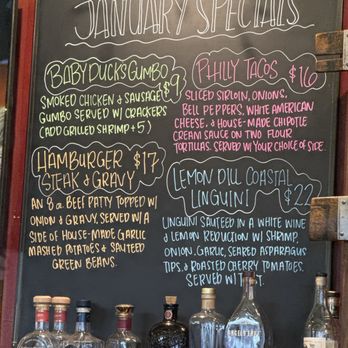 JANUARY SPECIALS
BABY DUCK'S GUMBO $9
SMOKED CHICKEN & SAUSAGE
GUMBO SERVED W/ CRACKERS
(ADD GRILLED SHRIMP +5)
PHILLY TACOS $16
SLICED SIRLOIN, ONIONS,
BELL PEPPERS, WHITE AMERICAN
CHEESE, & HOUSE-MADE CHIPOTLE
CREAM SAUCE ON TWO FLOUR
TORTILLAS. SERVED W/ YOUR CHOICE OF SIDE.
HAMBURGER $17
STEAK & GRAVY
AN 8oz BEEF PATTY TOPPED W/
ONION & GRAVY, SERVED W/ A
SIDE OF HOUSE-MADE GARLIC
MASHED POTATOES & SAUTEED
GREEN BEANS.
LEMON DILL COASTAL
LINGUINI $22
LINGUINI SAUTEED IN A WHITE WINE
& LEMON REDUCTION W/ SHRIMP,
ONION, GARLIC, SEARED ASPARAGUS
TIPS, & ROASTED CHERRY TOMATOES.
SERVED W/